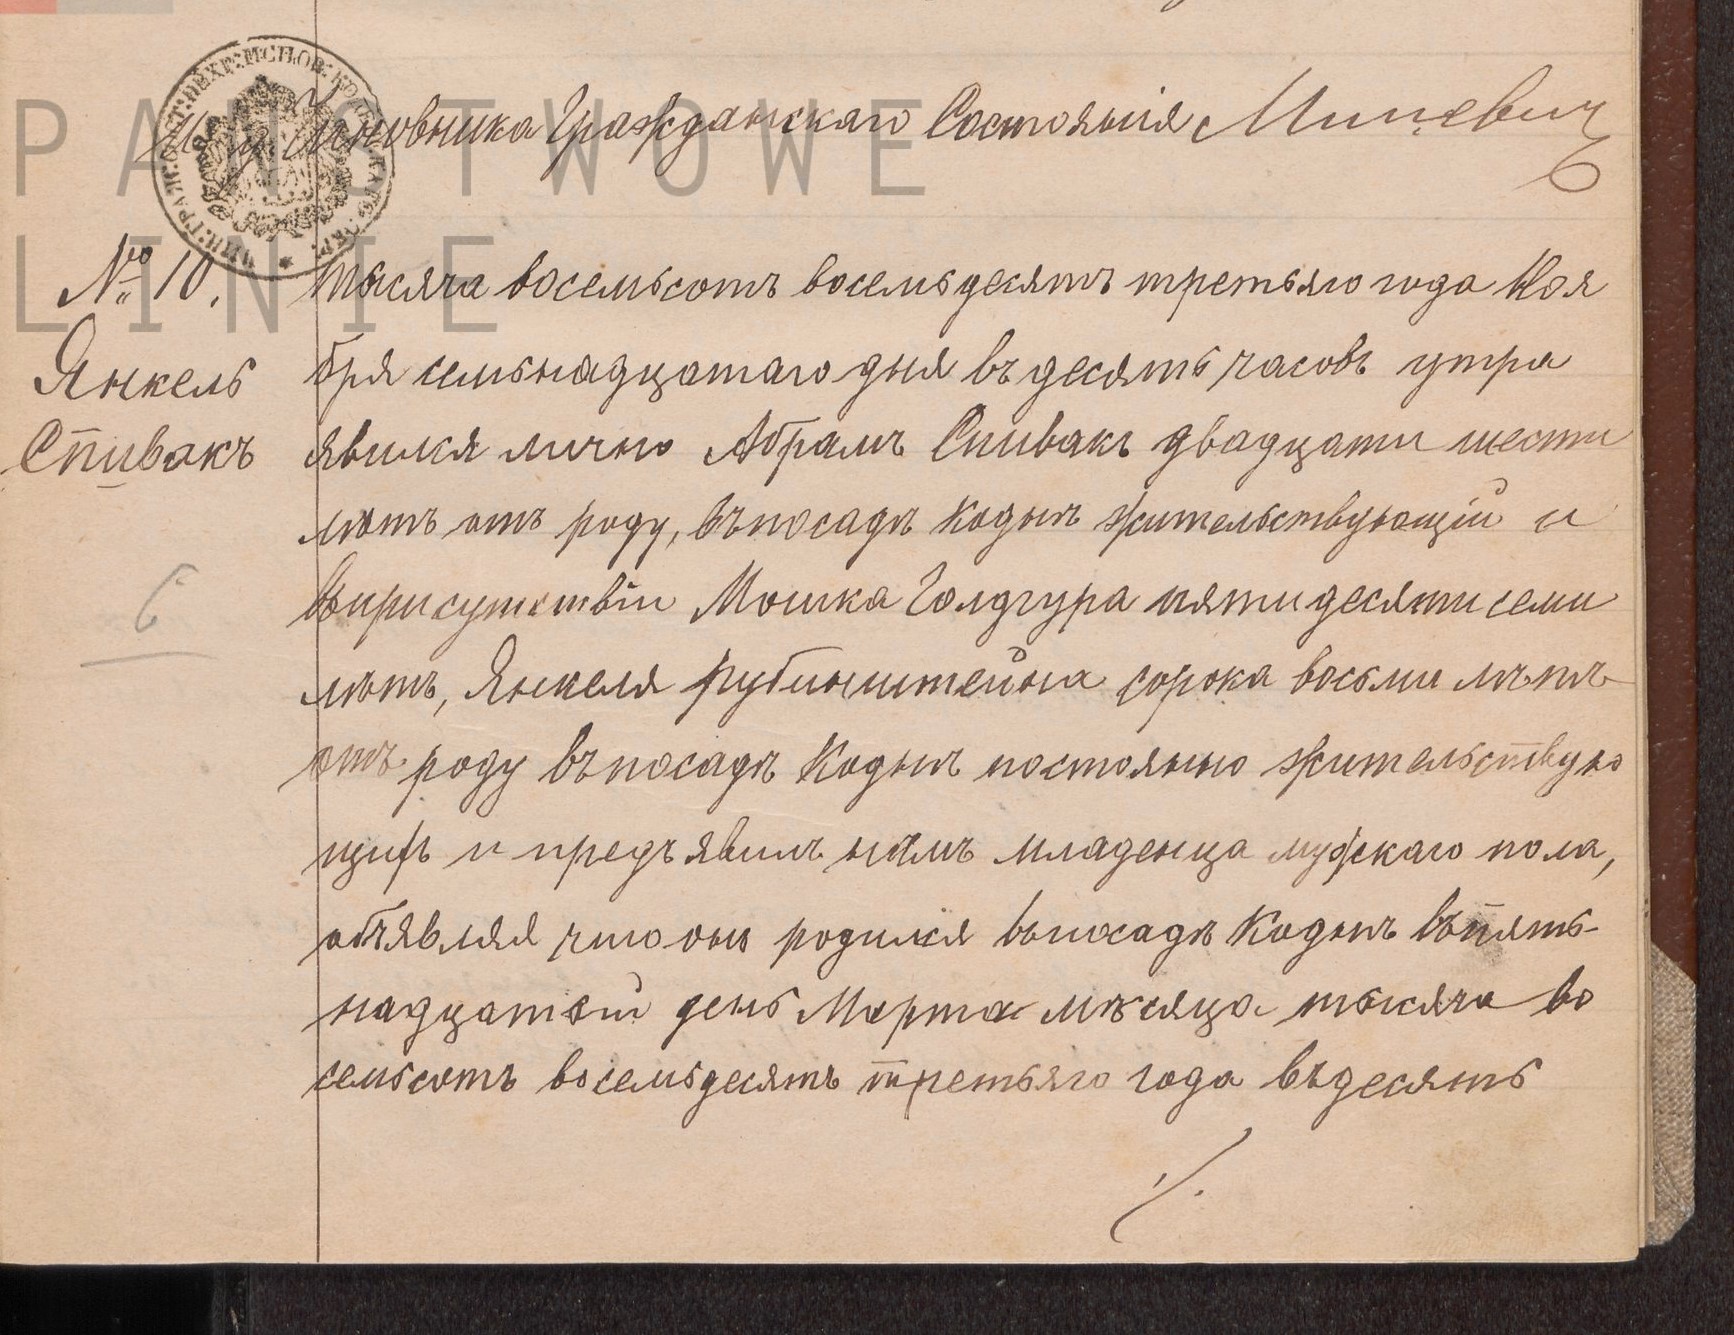 Чиновника Гражданскаго Состоянія
№ 10.
Янкель
Спивакъ
тысяча восемьсотъ восемьдесятъ третьяго года Ноя
бря семьнадцатаго дня въ десять часовъ утра
явился лично Абрамъ Спивакъ двадцати шести
лѣтъ отъ роду, въ посадѣ Коднѣ жительствующій и
въ присутствіи Мошка Голдгура пятидесяти семи
лѣтъ, Янкеля Рубинштейна сорока восьми лѣтъ
отъ роду въ посадѣ Коднѣ постоянно жительствую
щихъ и предъявилъ намъ младенца мужскаго пола,
объявляя что онъ родился въ посадѣ Коднѣ въ пять-
надцатый день Марта мѣсяца тысяча во
семьсотъ восемьдесятъ третьяго года въ десять
./.
6
PAŃSTWOWE
LINIE